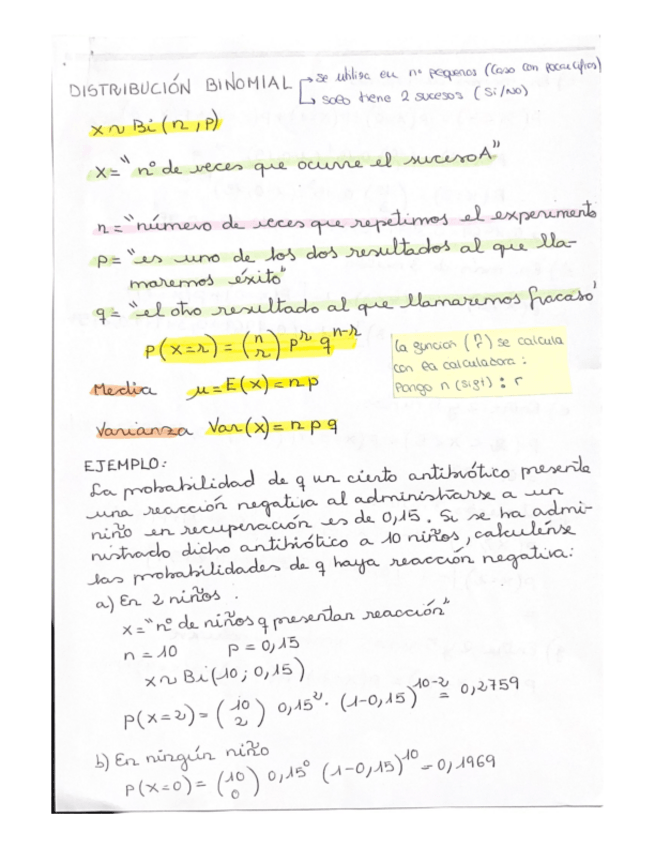 DISTRIBUCIÓN BINOMIAL → se utiliza en nº pequeños (Caso con pocas cifras)
↳ solo tiene 2 sucesos (Si/No)
x ~ Bi (n, p)
x = "nº de veces que ocurre el suceso A"
n = "número de veces que repetimos el experimento
p = "es uno de los dos resultados al que lla-
maremos éxito"
q = "el otro resultado al que llamaremos fracaso"
P(x=r) = (n r) p^r q^n-r
La función (n r) se calcula
con la calculadora:
Pongo n (sigt) : r
Media μ = E(x) = n p
Varianza Var(x) = n p q
EJEMPLO:
La probabilidad de q un cierto antibiótico presente
una reacción negativa al administrarse a un
niño en recuperación es de 0,15. Si se ha admi-
nistrado dicho antibiótico a 10 niños, calculénse
las probabilidades de q haya reacción negativa:
a) En 2 niños.
x = "nº de niños q presentan reacción"
n = 10 p = 0,15
x ~ Bi(10; 0,15)
P(x=2) = (10 2) 0,15² · (1-0,15)^10-2 = 0,2759
b) En ningún niño
P(x=0) = (10 0) 0,15^0 (1-0,15)^10 = 0,1969